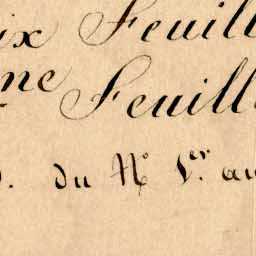 ix Feuill
ne Feuill
. du N° 1.er au